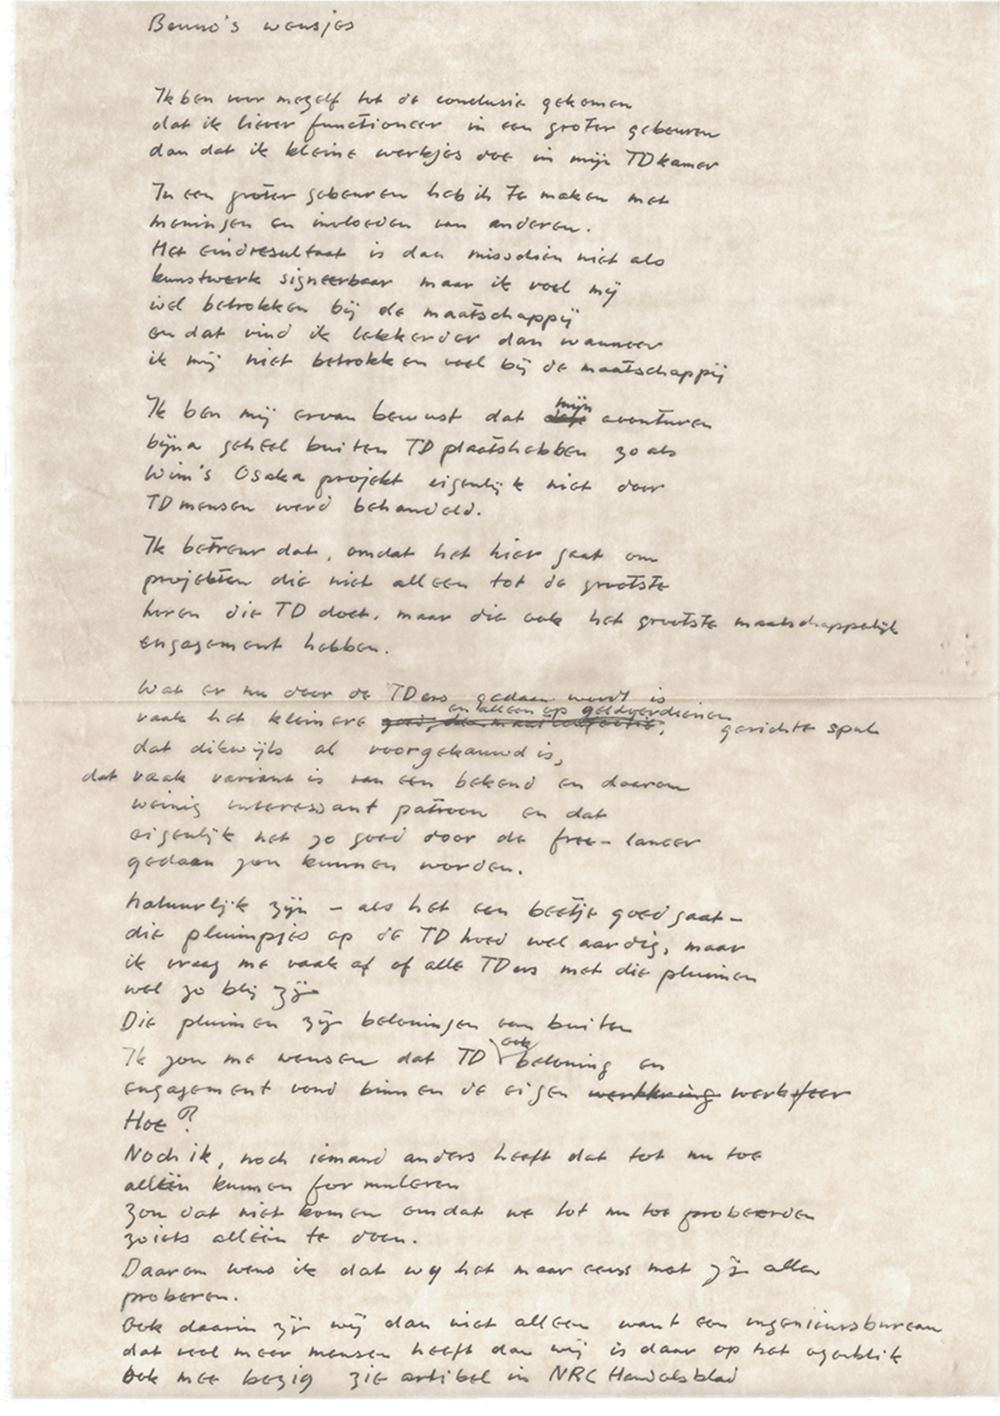 Benno's wensjes
Ik ben voor mezelf tot de conclusie gekomen
dat ik liever functioneer in een groter gebeuren
dan dat ik kleine werkjes doe in mijn TD kamer
In een groter gebeuren heb ik te maken met
meningen en invloeden van anderen.
Het eindresultaat is dan misschien niet als
kunstwerk signeerbaar maar ik voel mij
wel betrokken bij de maatschappij
en dat vind ik lekkerder dan wanneer
ik mij niet betrokken voel bij de maatschappij
Ik ben mij ervan bewust dat mijn avonturen
bijna geheel buiten TD plaatshebben zoals
Wim's Osaka projekt eigenlijk niet door
TD mensen werd behandeld.
Ik betreur dat, omdat het hier gaat om
projekten die niet alleen tot de grootste
horen die TD doet, maar die ook het grootste maatschappelijk
engagement hebben.
Wat er nu door de TDers gedaan wordt is
vaak het kleinere en alleen op geldverdienen gerichte spul
dat dikwijls al voorgekauwd is,
dat vaak variant is van een bekend en daarom
weinig interessant patroon en dat
eigenlijk net zo goed door de free-lancer
gedaan zou kunnen worden.
Natuurlijk zijn – als het een beetje goed gaat –
die pluimpjes op de TD hoed wel aardig, maar
ik vraag me vaak af of alle TDers met die pluimen
wel zo blij zijn
Die pluimen zijn beloningen van buiten
Ik zou me wensen dat TD ook beloning en
engagement vond binnen de eigen werksfeer
Hoe?
Noch ik, noch iemand anders heeft dat tot nu toe
alléén kunnen formuleren
zou dat niet komen omdat we tot nu toe probeerden
zoiets alléén te doen.
Daarom wens ik dat wij het maar eens met z'n allen
proberen.
Ook daarin zijn wij dan niet alleen want een ingenieursbureau
dat veel meer mensen heeft dan wij is daar op het ogenblik
ook mee bezig zie artikel in NRC Handelsblad